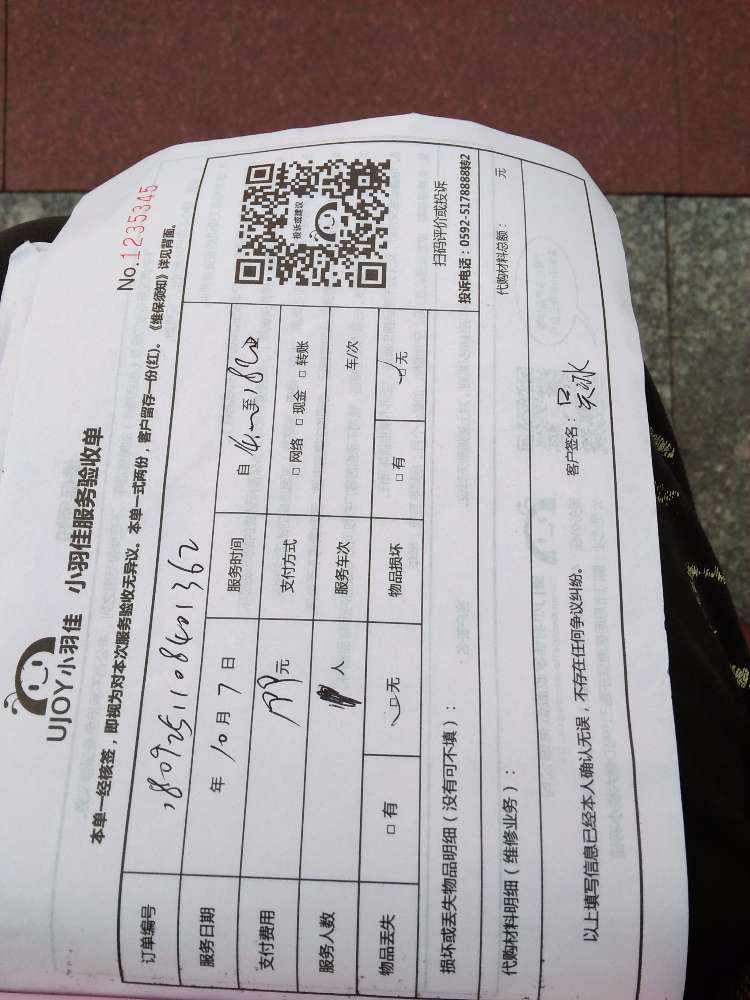 UJOY小羽佳 小羽佳服务验收单
No.1235345
本单一经核签,即视为对本次服务验收无异议。本单一式两份,客户留存一份(红)。《维保须知》详见背面。
订单编号 1809251108401362
服务日期 年 10 月 7 日 服务时间 自 至
支付费用 元 支付方式 □ 网络 □ 现金 □ 转账
服务人数 人 服务车次 车/次
物品丢失 □ 有 □ 无 物品损坏 □ 有 □ 无
投诉或建议
扫码评价或投诉
投诉电话:0592-5178888转2
损坏或丢失物品明细(没有可不填):
代购材料明细(维修业务): 代购材料总额: 元
以上填写信息已经本人确认无误,不存在任何争议纠纷。 客户签名: